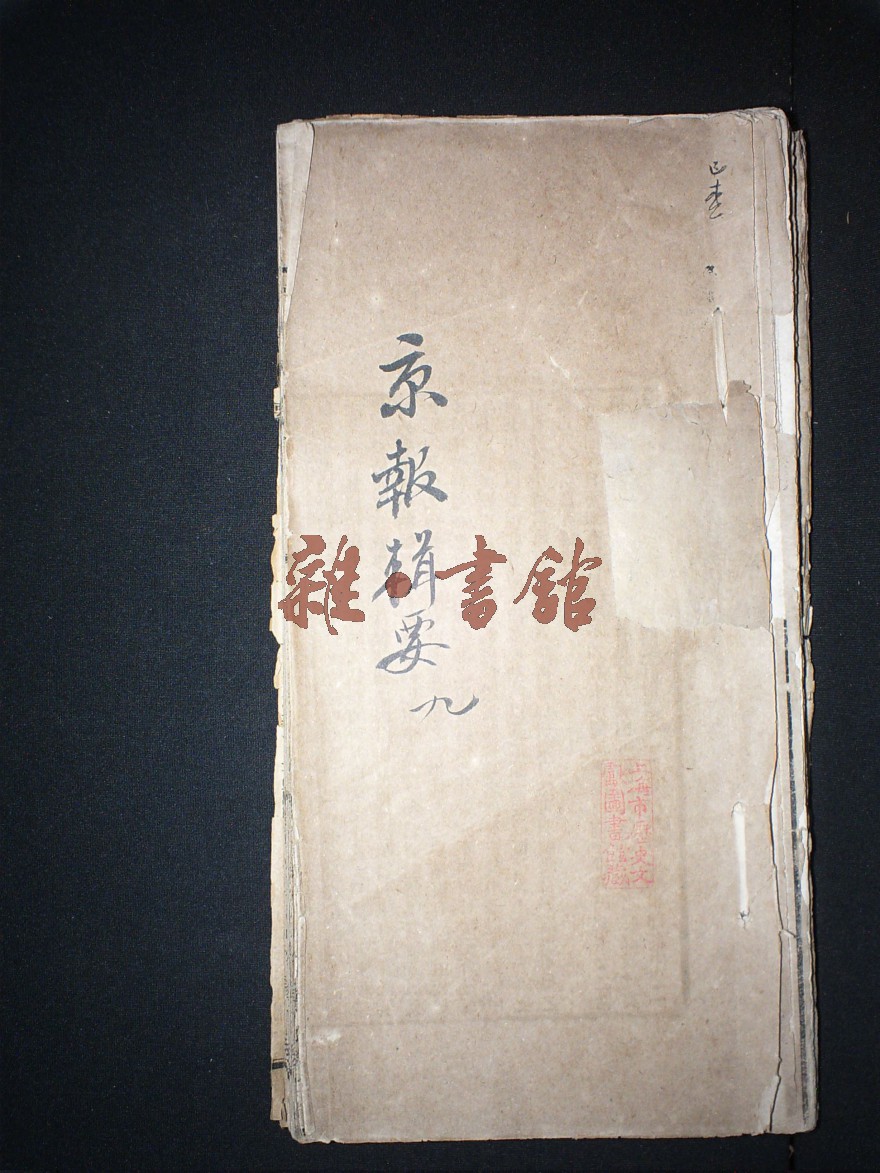 京報輯要
九
雜·書館
上海市歷史文
獻圖書館藏